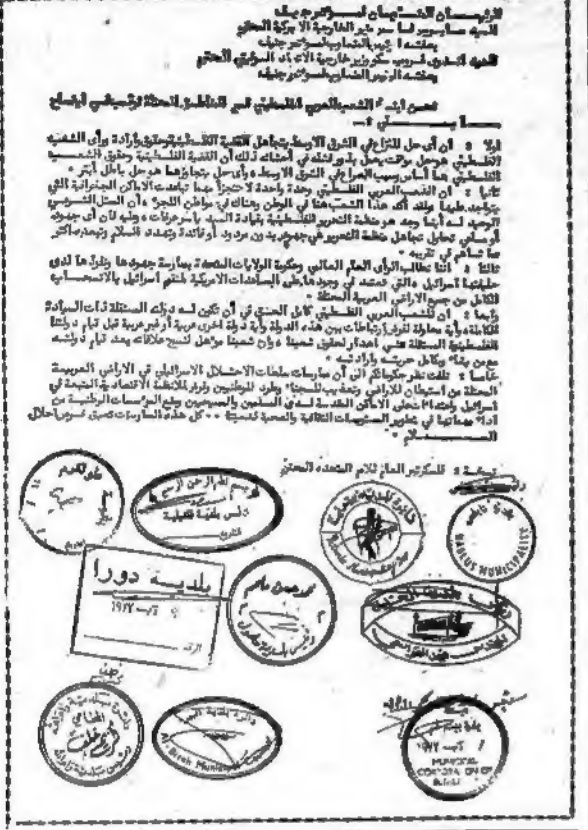 الرئيسان المشتركان لمؤتمر جنيف
السيد سايروس فانس وزير الخارجية الامريكية المحترم
بصفته الرئيس المشارك لمؤتمر جنيف
السيد اندريه غروميكو وزير خارجية الاتحاد السوفيتي المحترم
بصفته الرئيس المشارك لمؤتمر جنيف
نحن ابناء الشعب العربي الفلسطيني في المناطق المحتلة
ما يلي :ـ
اولا : ان أي حل للنزاع في الشرق الاوسط يتجاهل القضية الفلسطينية وحقوق وارادة ورأي الشعب
الفلسطيني هو حل مؤقت يحمل بذور فشله في أحشائه ذلك أن القضية الفلسطينية وحقوق الشعب
الفلسطيني هما أساس وسبب الصراع في الشرق الاوسط وأي حل يتجاوزهما هو حل باطل أبتر ٠
ثانيا : ان الشعب العربي الفلسطيني وحدة واحدة لا تتجزأ مهما تباعدت الاماكن الجغرافية التي
يتواجد عليها ولقد أكد هذا الشعب هنا في الوطن وهناك في مواطن اللجوء أن الممثل الشرعي
الوحيد له أينما وجد هو منظمة التحرير الفلسطينية بقيادة السيد ياسر عرفات وعليه فان أي جهود
أو مساعي تحاول تجاهل منظمة التحرير هي جهود بدون مردود أو فائدة وتهدد السلام وتبعده اكثر
مما تساهم في تقريبه ٠
ثالثا : أننا نطالب الرأي العام العالمي وحكومة الولايات المتحدة بممارسة جهودها ونفوذها لدى
حليفتها اسرائيل والتي تعتمد في وجودها على المساعدات الامريكية لتقوم اسرائيل بالانسحاب
الكامل من جميع الاراضي العربية المحتلة ٠
رابعا : ان للشعب العربي الفلسطيني كامل الحق في أن تكون له دولته المستقلة ذات السيادة
الكاملة وأية محاولة لفرض ارتباطات بين هذه الدولة وأية دولة اخرى عربية أو غير عربية قبل قيام دولتنا
الفلسطينية المستقلة هي اهدار لحقوق شعبنا وان شعبنا مؤهل لنسج علاقاته بعد قيام دولته
وكامل حريته وارادته ٠
خامسا : نلفت نظر حكوماتكم الى أن ممارسات سلطات الاحتلال الاسرائيلي في الاراضي العربية
المحتلة من استيطان للاراضي وتعذيب للسجناء وطرد للمواطنين وفرض للانظمة الاقتصادية المتبعة في
اسرائيل واعتداء على الاماكن المقدسة لدى المسلمين والمسيحيين ومنع المؤسسات الوطنية من
أداء مهماتها في تطوير المستويات الثقافية والصحية لشعبنا ٠٠ كل هذه الممارسات تعيق فرص احلال
السلام ٠
نسخة : للسكرتير العام للامم المتحدة المحترم
بسم الله الرحمن الرحيم
رئيس بلدية قلقيلية
بلدية نابلس
NABLUS MUNICIPALITY
بلدية دورا
رئيس بلدية حلحول
المهندس
دائرة بلدية البيرة
Al-Bireh Municipality
المحامي
كريم خلف
رئيس بلدية رام الله
بلدية
MUNICIPAL
CORPORATION OF